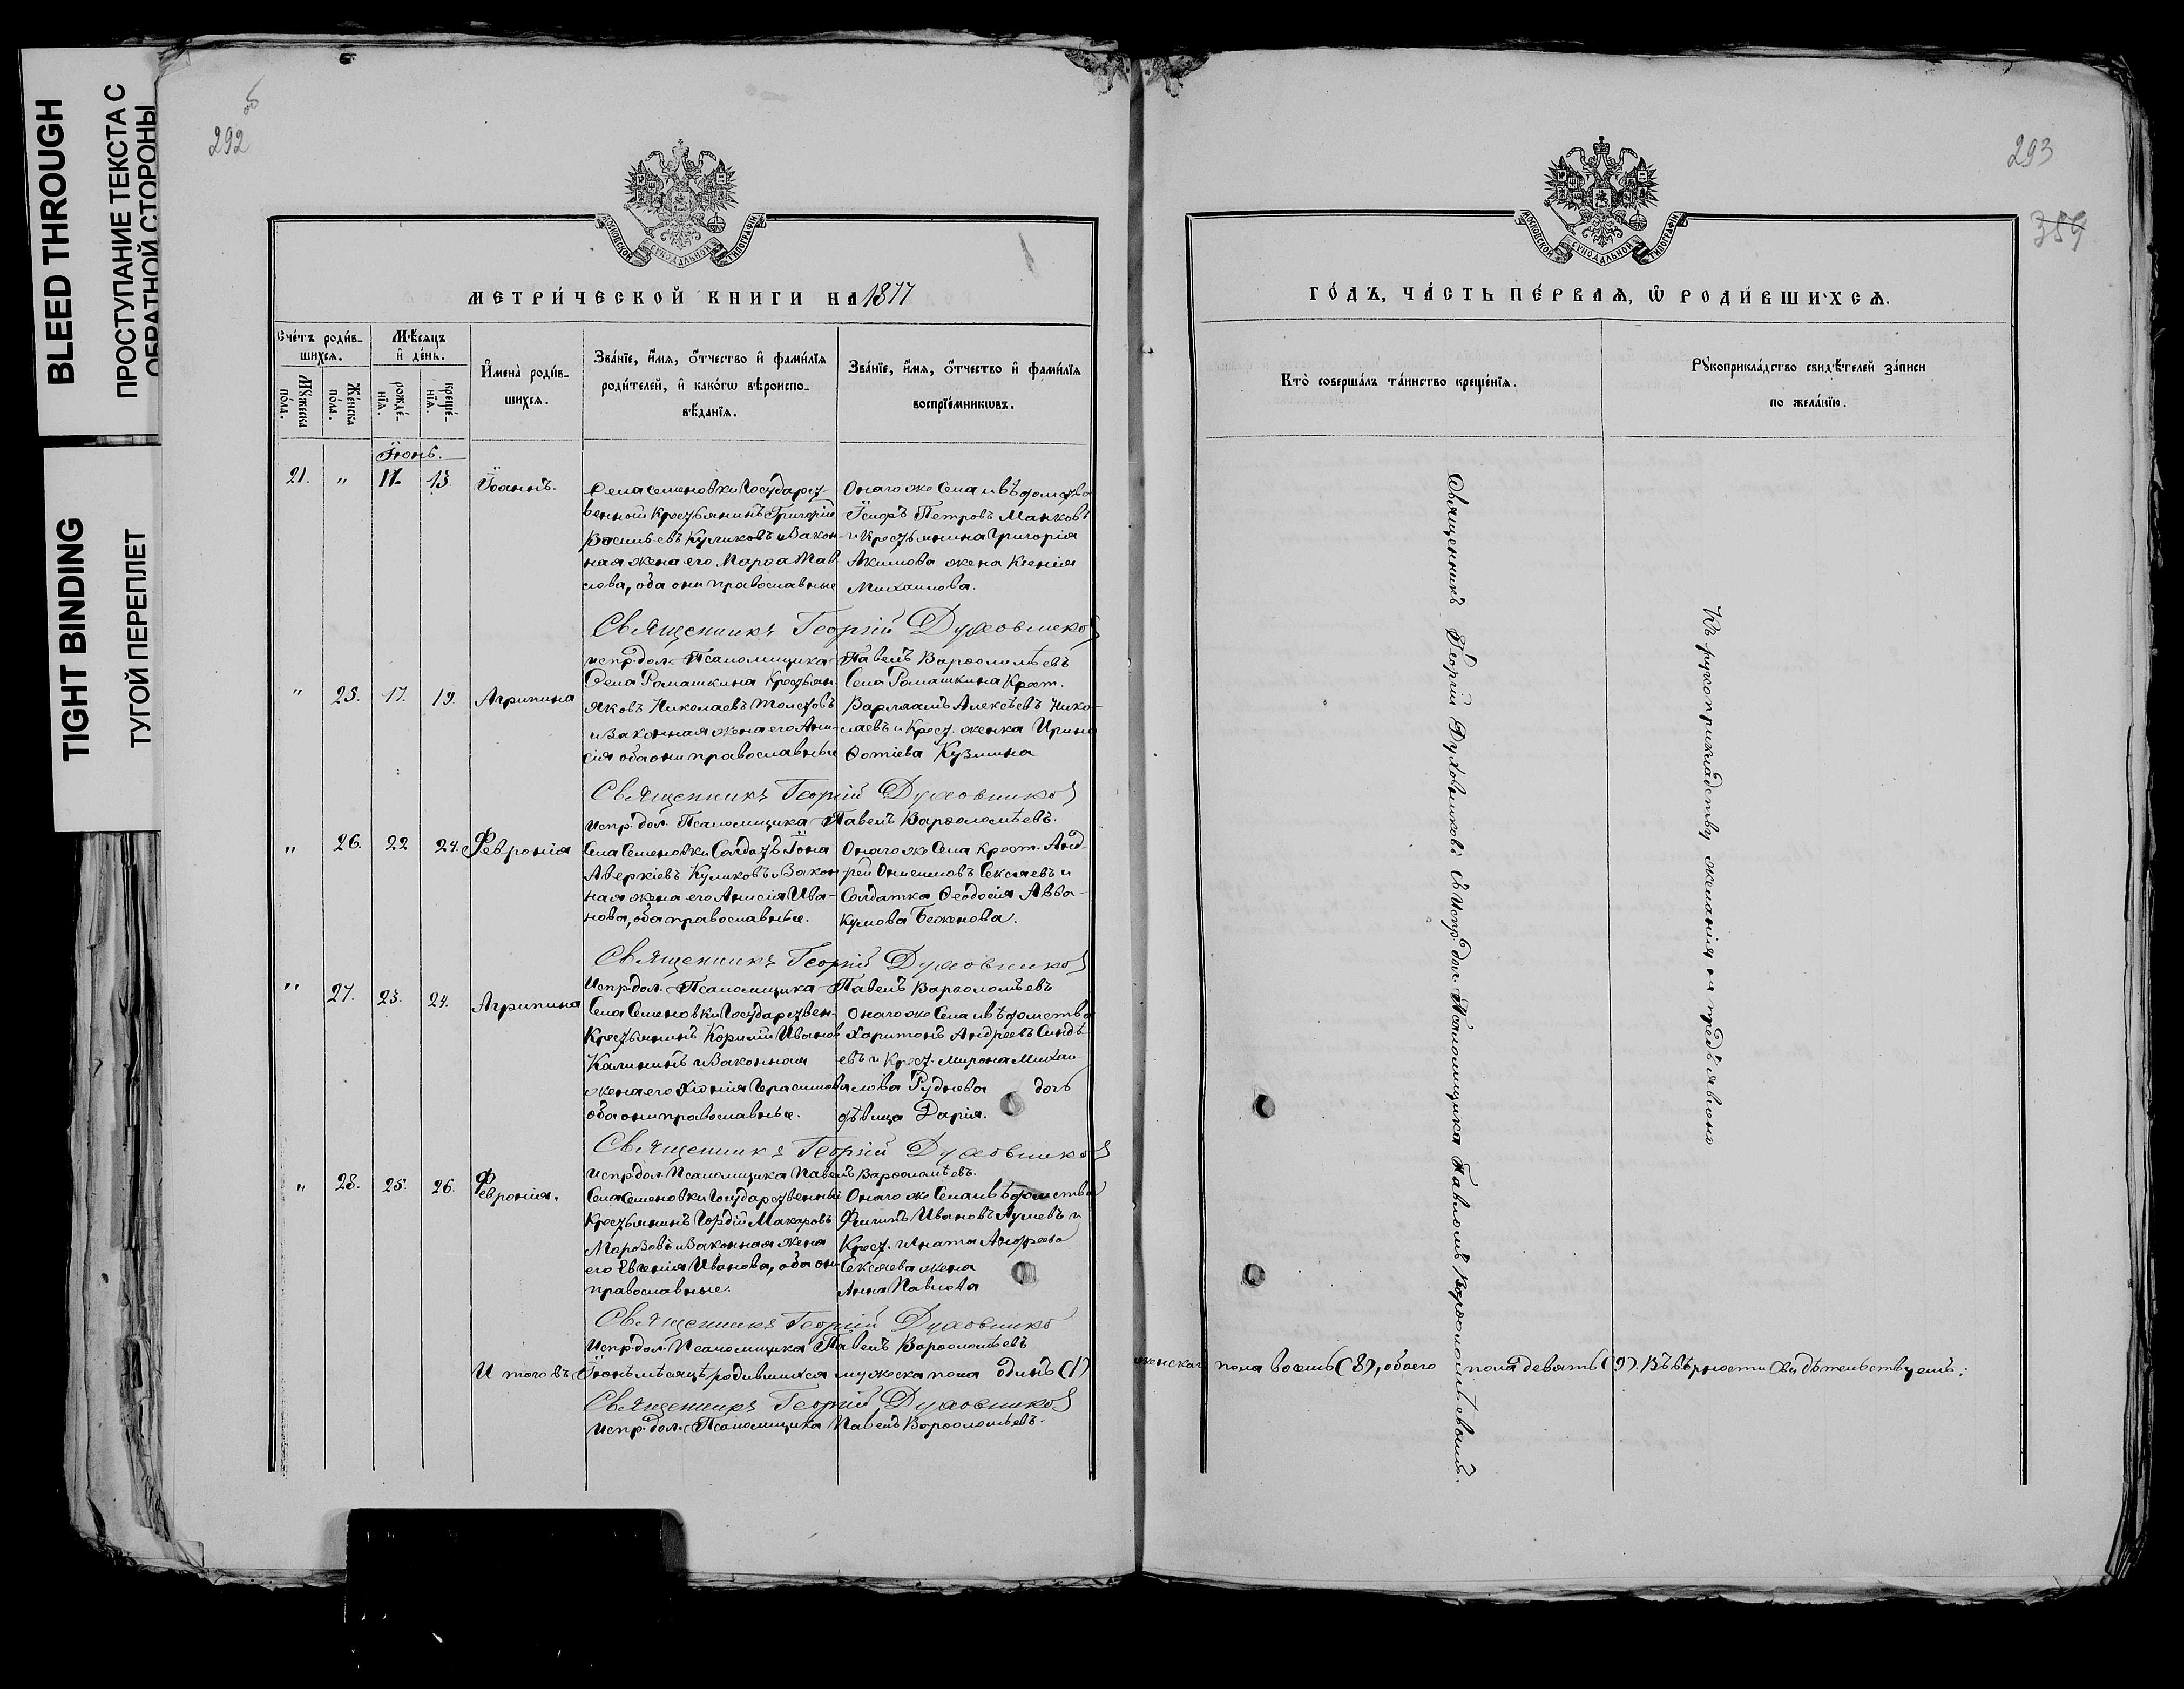 BLEED THROUGH
ПРОСТУПАНИЕ ТЕКСТА С
ОБРАТНОЙ СТОРОНЫ
TIGHT BINDING
ТУГОЙ ПЕРЕПЛЕТ
292 об
МОСКОВСКОЙ СУНОДАЛЬНОЙ ТИПОГРАФІИ
МЕТРИ́ЧЕСКОЙ КНИГИ НА 1877
Сче́тъ роди́в-
шихся.
Мꙋ́жеска по́ла.
Же́нска по́ла.
Мѣ́сяцъ
и҆ де́нь.
рожде́-
нїя.
креще́-
нїя.
И҆мена̀ роди́в-
шихся.
Зва́нїе, и҆́мя, ѻ҆́тчество и҆ фами́лїя
роди́телей, и҆ како́гѡ вѣроиспо-
вѣ́данїя.
Зва́нїе, и҆́мя, ѻ҆́тчество и҆ фами́лїя
воспрїе́мникѡвъ.
Іюнь.
21. " 11 13. Іоаннъ.
Села Семеновки Государст-
венный Крестьянинъ Григорій
Васильевъ Куликовъ и Закон-
ная жена его Марѳа Пав-
лова, оба они православные
Онаго же Села и вѣдомства
Петровъ Манковъ
и Крестьянина Григорія
Акимова жена Ксенія
Михаилова.
Священникъ Георгій Духовников
испр. дол. Псаломщика Павелъ Варѳоломѣевъ
" 25. 17. 19. Агрипина
Села Ромашкина Крестьян.
Яковъ Николаевъ Толстовъ
и Законная жена его Ани-
сія оба они православные
Села Ромашкина Крест.
Варлаамъ Алексѣевъ Нико-
лаевъ и Крест. женка Ирина
Ѳотіева Кузмина
Священникъ Георгій Духовников
Испр. дол. Псаломщика Павелъ Варѳоломѣевъ.
" 26. 22 24. Февронія
Села Семеновки Солдатъ Іона
Аверкіевъ Куликовъ и Закон
ная жена его Анисія Ива-
нова, оба православные.
Онаго же Села Крест. Анд-
рей Онисимовъ Секлаевъ и
Солдатка Ѳеодосія Авва-
кумова Беженова.
Священникъ Георгій Духовников
Испр. дол. Псаломщика Павелъ Варѳоломѣевъ
" 27. 23. 24. Агрипина
Села Семеновки Государствен-
Крестьянинъ Корнилій Иванов
Калининъ и Законная
жена его Хіонія Герасимов
оба они православные.
Онаго же Села и вѣдомства
Харитонъ Андреевъ Синдѣ-
евъ и Крест. Мирона Михаи-
лова Руднева дочь
дѣвица Дарія.
Священникъ Георгій Духовников
испр. дол. Псаломщика Павелъ Варѳоломѣевъ.
" 28. 25. 26. Февронія.
Села Семеновки Государственный
Крестьянинъ Гордій Макаровъ
Морозовъ и Законная Жена
его Евгенія Иванова, оба они
православные.
Онаго же Села и вѣдомства
Филипъ Ивановъ и
Крест. Игната
Секлаева жена
Анна Павлова
Священникъ Георгій Духовнико
Испр. дол. Псаломщика Павелъ Варѳоломѣевъ
И того въ Іюнѣ мѣсяцѣ родившихся мужеска пола одинъ (1)
Священникъ Георгій Духовников
Испр. дол. Псаломщика Павелъ Варѳоломѣевъ.
293
359
МОСКОВСКОЙ СУНОДАЛЬНОЙ ТИПОГРАФІИ
ГО́ДЪ, ЧА́СТЬ ПЕ́РВАЯ, Ѡ҆ РОДИ́ВШИХСЯ.
Кто̀ соверша́лъ та́инство креще́нїя.
Рꙋкоприкла́дство свидѣ́телей за́писи
по жела́нїю.
Священникъ Георгій Духовниковъ съ Испр. дол. Псаломщика Павломъ Варѳоломѣевымъ.
Къ рукоприкладству желанія не предъявлено
женскаго пола восемь (8), обоего пола девять (9). Въ вѣрности Свидѣтельствуемъ: